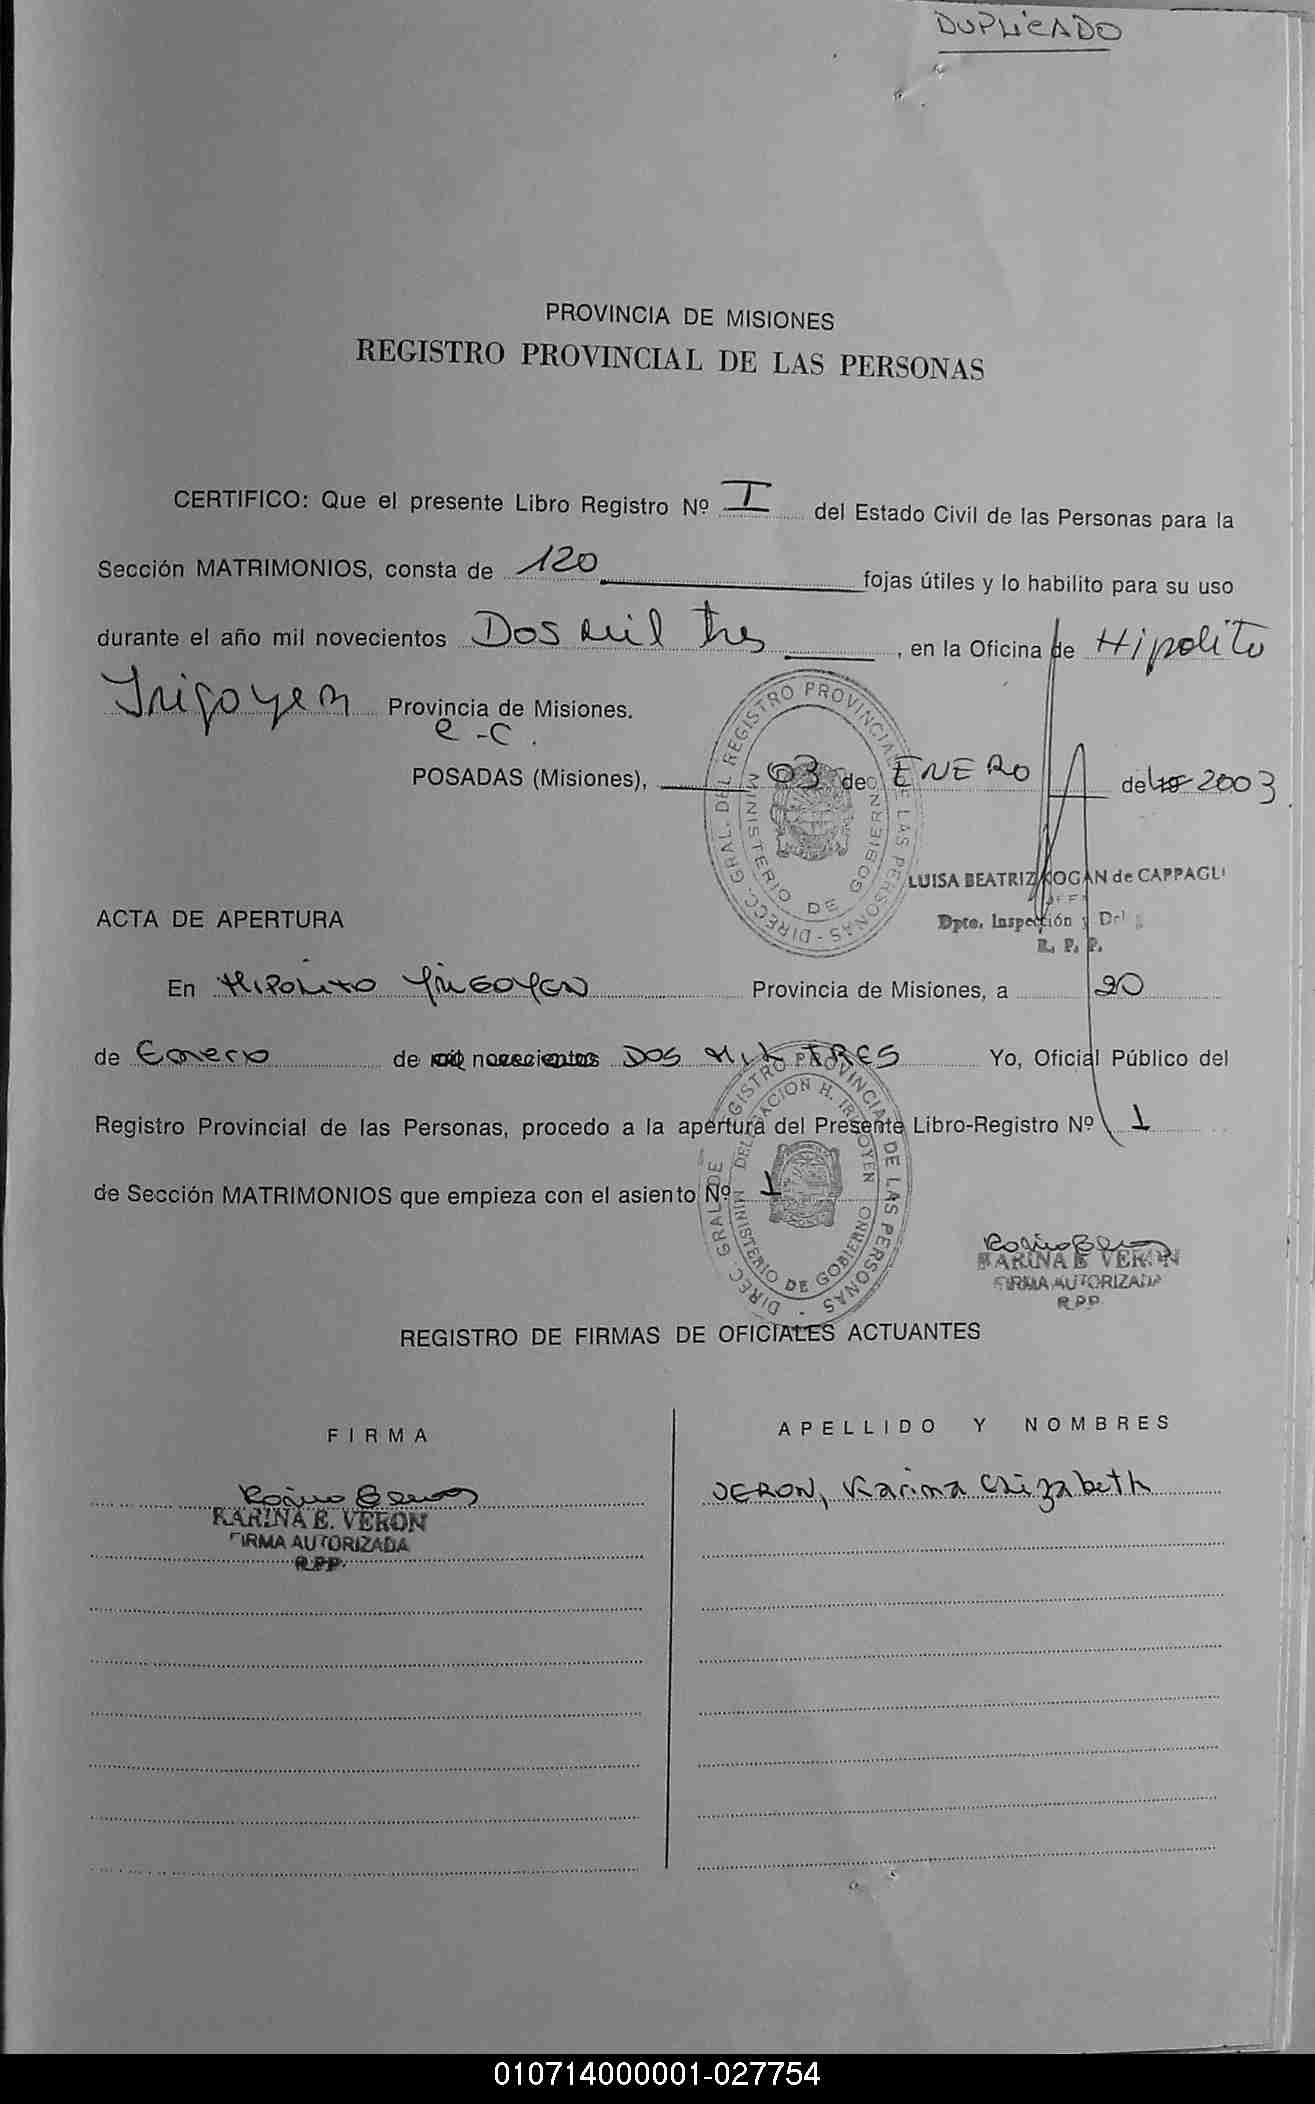 DUPLICADO
PROVINCIA DE MISIONES
REGISTRO PROVINCIAL DE LAS PERSONAS
CERTIFICO: Que el presente Libro Registro Nº I del Estado Civil de las Personas para la
Sección MATRIMONIOS, consta de 120 fojas útiles y lo habilito para su uso
durante el año mil novecientos Dos mil tres, en la Oficina de Hipolito
Irigoyen Provincia de Misiones.
e-c.
POSADAS (Misiones), 03 de ENERO de 19 2003.
DIRECC. GRAL. DEL REGISTRO PROVINCIAL DE LAS PERSONAS -
MINISTERIO DE GOBIERNO
LUISA BEATRIZ KOGAN de CAPPAGLI
Dpto. Inspección y
R. P. P.
ACTA DE APERTURA
En Hipolito Yrigoyen Provincia de Misiones, a 20
de Enero de mil novecientos DOS MIL TRES Yo, Oficial Público del
Registro Provincial de las Personas, procedo a la apertura del Presente Libro-Registro Nº 1
de Sección MATRIMONIOS que empieza con el asiento Nº 1
DIREC. GRAL. DE REGISTRO PROVINCIAL DE LAS PERSONAS -
DELEGACION H. IRIGOYEN
MINISTERIO DE GOBIERNO
KARINA E. VERON
FIRMA AUTORIZADA
R.P.P.
REGISTRO DE FIRMAS DE OFICIALES ACTUANTES
FIRMA
APELLIDO Y NOMBRES
VERON, Karina Elizabeth
KARINA E. VERON
FIRMA AUTORIZADA
R.P.P.
010714000001-027754